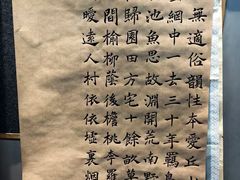 無適俗韻性本愛丘
網中一去三十年羈鳥
池魚思故淵開荒南野
歸園田方宅十餘畝草
間榆柳蔭後檐桃李羅
曖遠人村依依墟裏烟